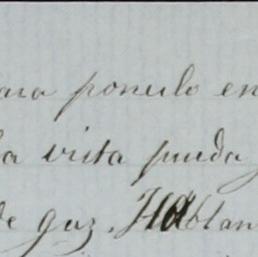 ara ponerlo en
la vista pueda
de gaz. Hablan